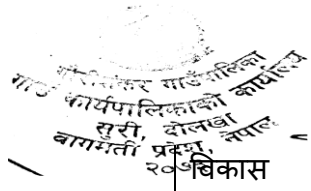 गौरीशंकर गाउँपालिका
गाउँ कार्यपालिकाको कार्यालय
सुरी, दोलखा
बागमती प्रदेश, नेपाल
विकास